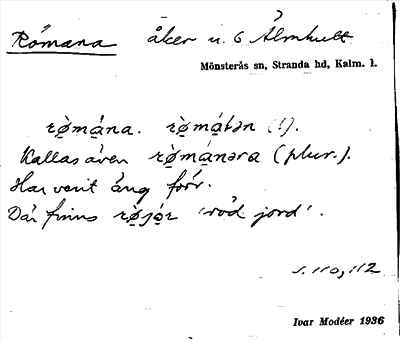 Römana åker u. 6 Älmhult
Mönsterås sn, Stranda hd, Kalm. l.
rø̀mána. rø̀mátən (!).
Kallas även rø̀mánəra (plur.).
Har verit äng förr.
Där finns rø̀jór 'röd jord'.
s. 110, 112
Ivar Modéer 1936